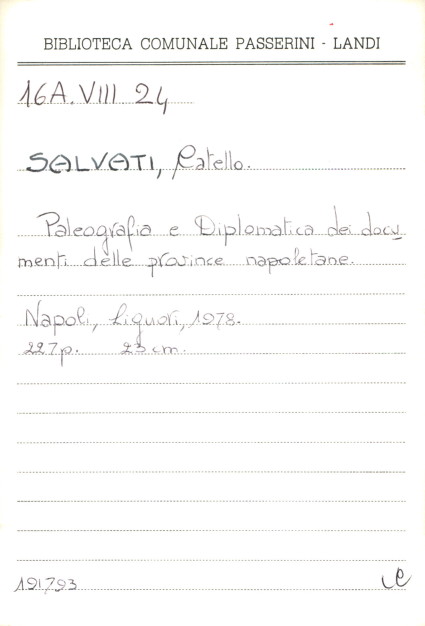 BIBLIOTECA COMUNALE PASSERINI - LANDI
16A.VIII 24
SALVATI, Catello.
Paleografia e Diplomatica dei docu
menti delle province napoletane.
Napoli, Liguori, 1978.
227p. 23 cm.
191793